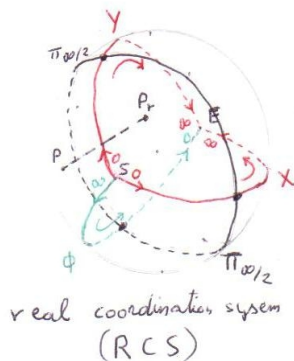 Y
Π∞/2
Pr
E
P
∞
∞
∞
S
0
0
X
ϕ
Π∞/2
real coordination sysem
(RCS)